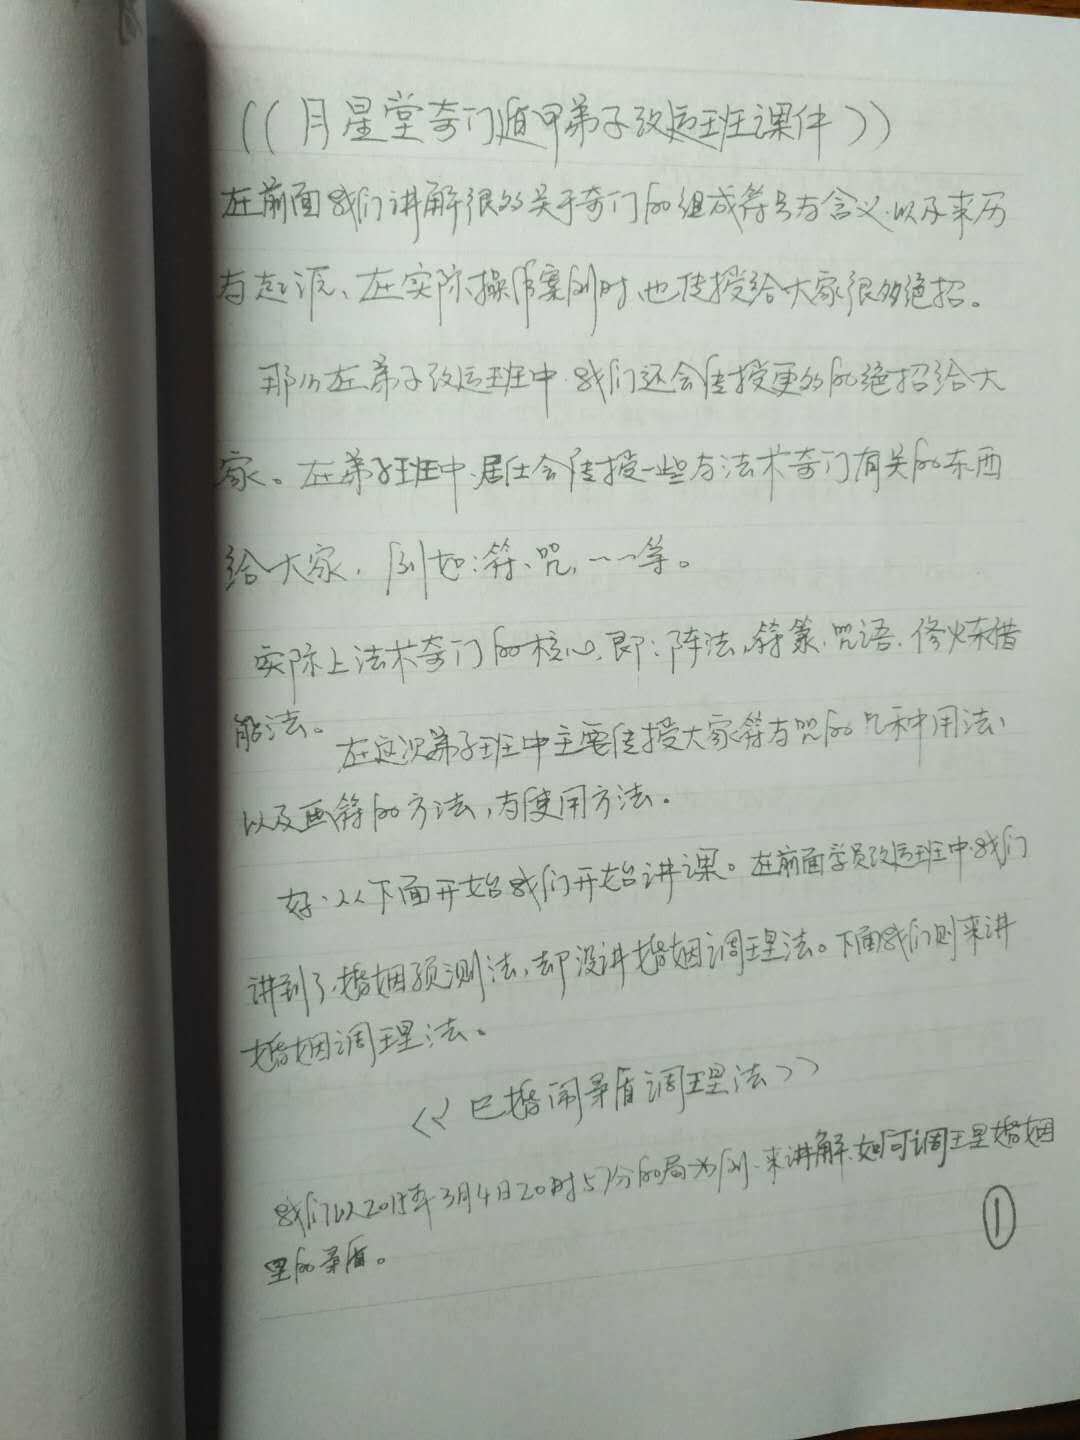 ((月星堂奇门遁甲弟子改运班课件))
在前面我们讲解很多关于奇门的组成符号与含义.以及来历
与起源、在实际操作案例时.也传授给大家很多绝招。
那么在弟子改运班中.我们还会传授更多的绝招给大
家。在弟子班中.居士会传授一些与法术奇门有关的东西
给大家.例如:符、咒,……等。
实际上法术奇门的核心.即:阵法,符篆.咒语.修炼借
能法。
在这次弟子班中主要传授大家符与咒的几种用法、
以及画符的方法,与使用方法。
好.以下面开始我们开始讲课。在前面学员改运班中.我们
讲到了.婚姻预测法,却没讲婚姻调理法。下面我们则来讲
婚姻调理法。
<<已婚闹矛盾调理法>>
我们以2015年3月4日20时57分的局为例.来讲解.如何调理婚姻
里的矛盾。
①